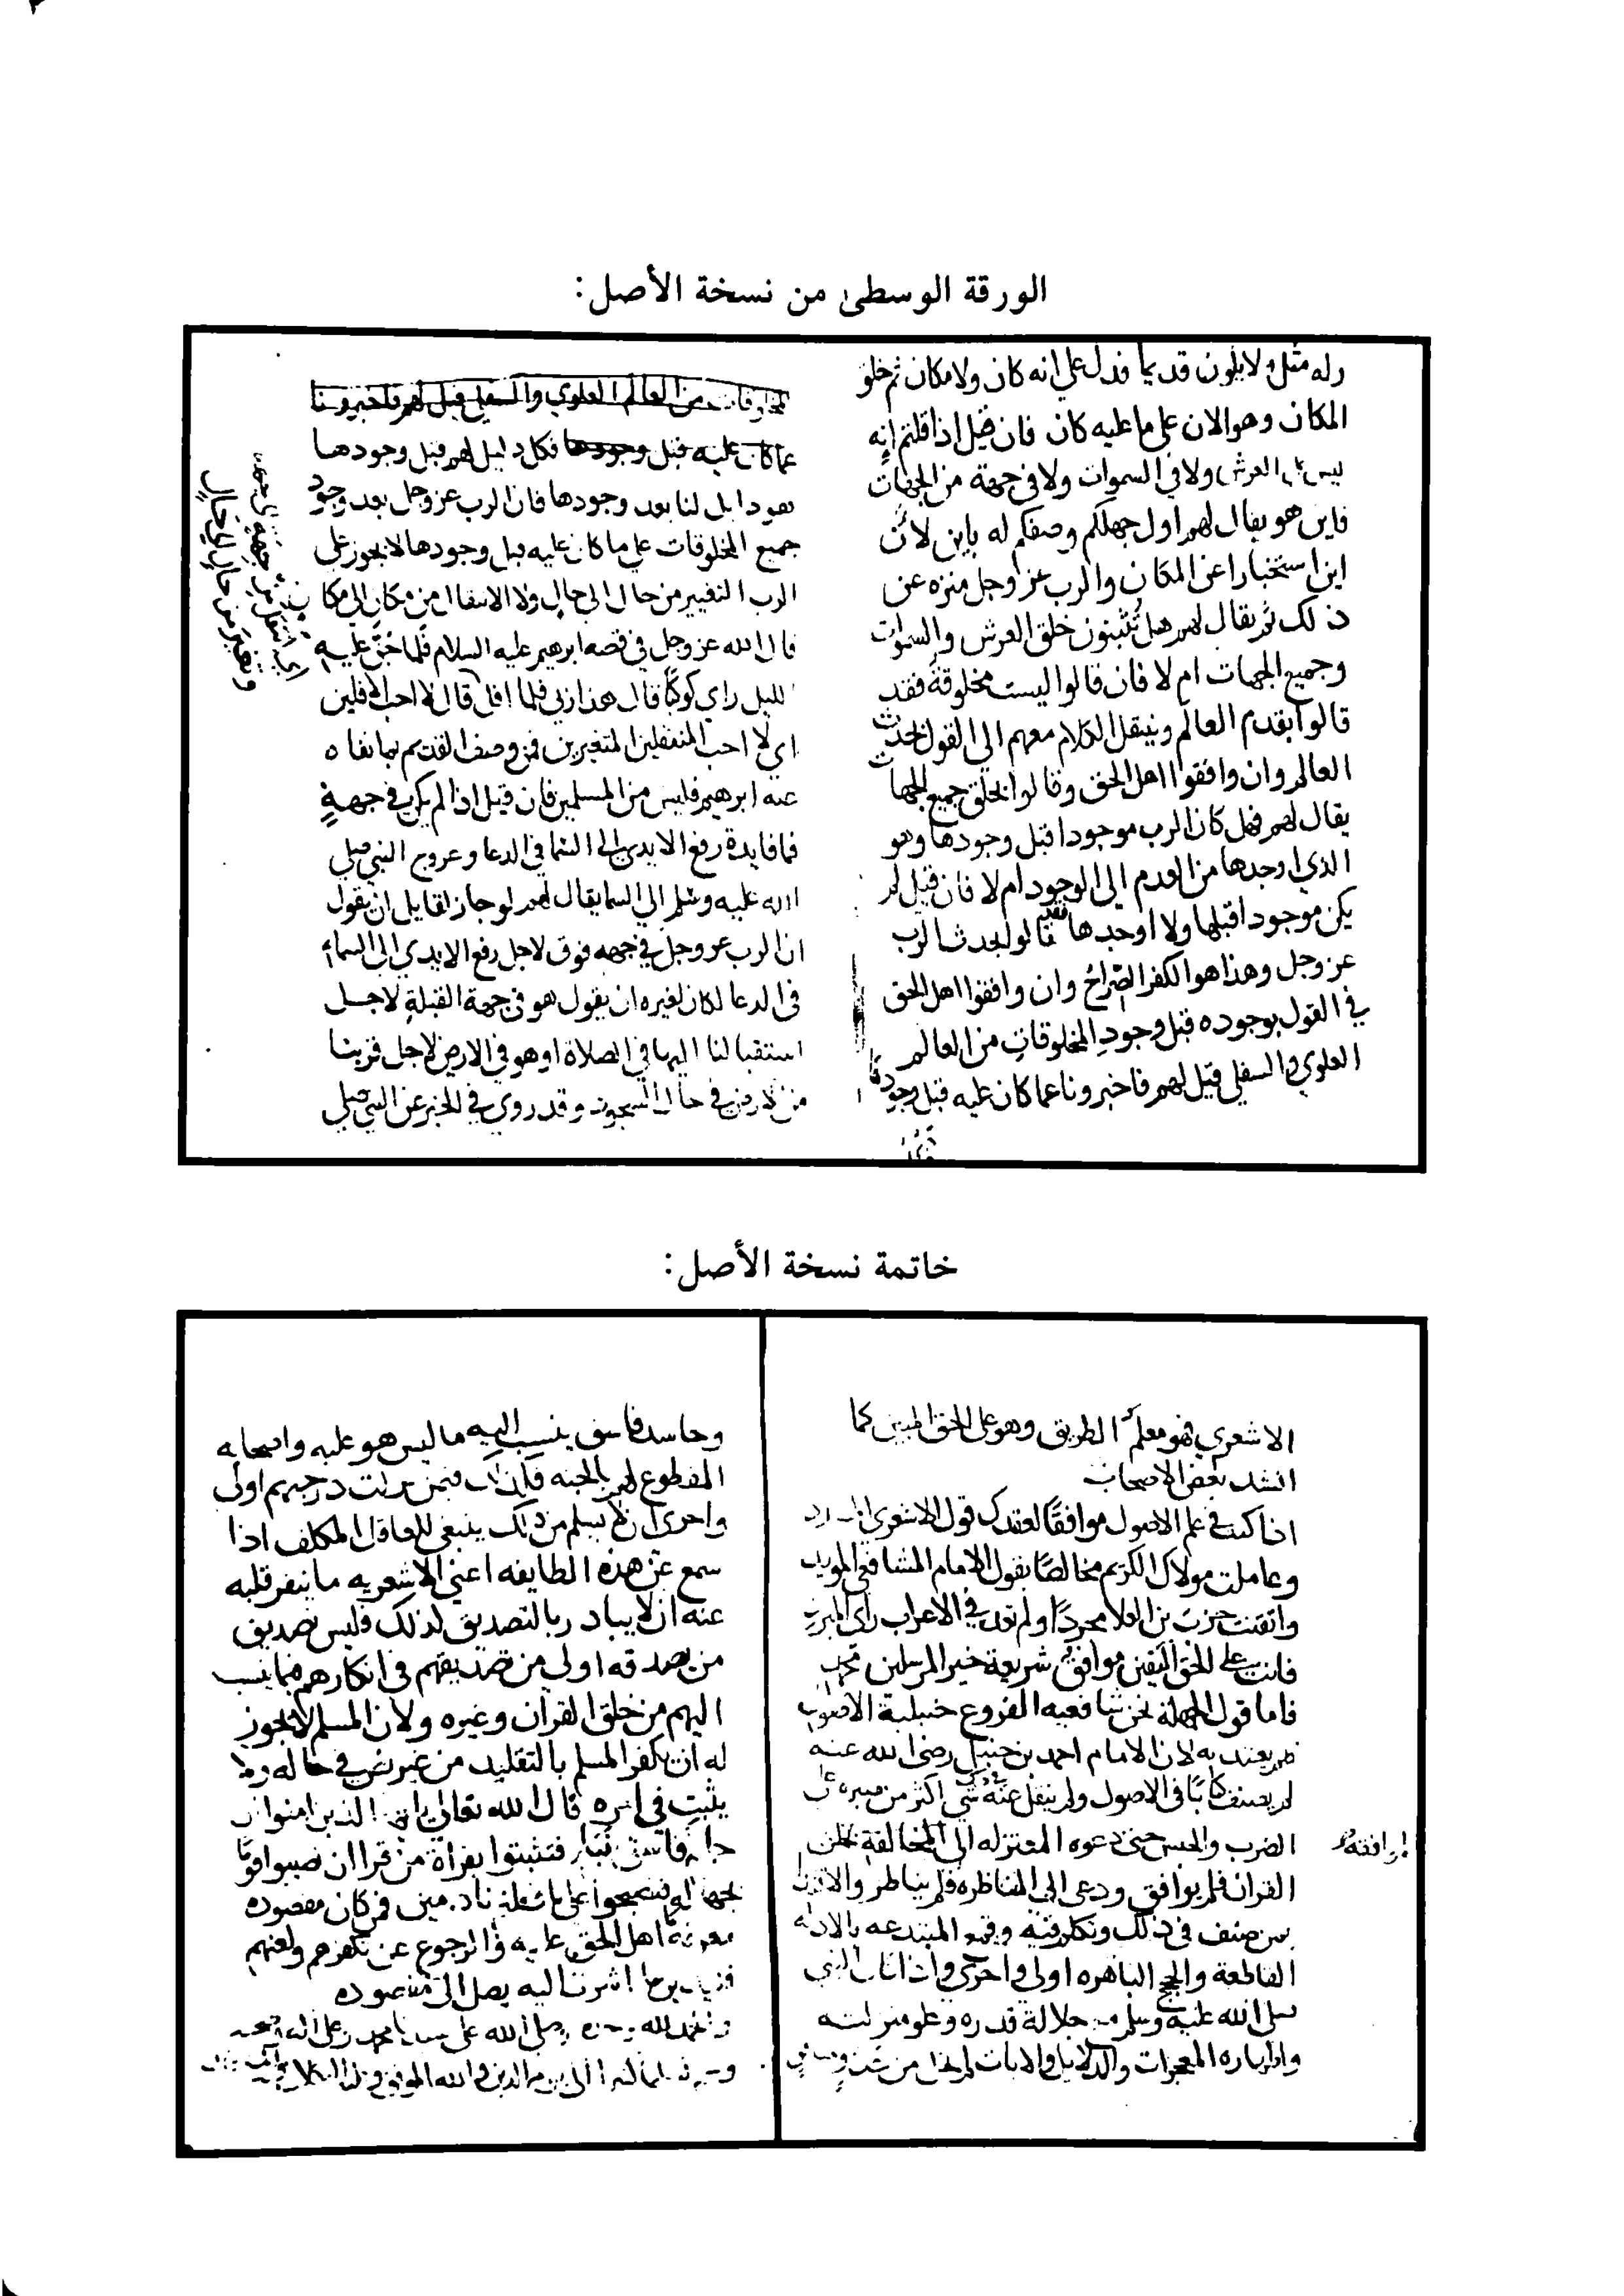 الورقة الوسطى من نسخة الأصل:
وله مثل ولا يكون قديما فدل على انه كان ولا مكان ثم خلق
المكان وهو الان على ما عليه كان فان قيل اذا قلتم انه
ليس على العرش ولا في السموات ولا في جهة من الجهات
فاين هو يقال لهم اول جهلكم وصفكم له باين لان
اين استخبارا عن المكان والرب عز وجل منزه عن
ذلك ثم يقال لهم هل تثبتون خلق العرش والسموات
وجميع الجهات ام لا فان قالوا ليست مخلوقة فقد
قالوا بقدم العالم وينتقل الكلام معهم الى القول بحدث
العالم وان وافقوا اهل الحق وقالوا بخلق جميع الجهات
يقال لهم فهل كان الرب موجودا قبل وجودها وهو
الذي اوجدها من العدم الى الوجود ام لا فان قيل لم
يكن موجودا قبلها ولا اوجدها فقد قالوا بحدث الرب
عز وجل وهذا هو الكفر الصراح وان وافقوا اهل الحق
في القول بوجوده قبل وجود المخلوقات من العالم
العلوي والسفلي قيل لهم فاخبرونا عما كان عليه قبل وجودها
المخلوقات من العالم العلوي والسفلي قيل لهم فاخبرونا
عما كان عليه قبل وجودها فكل دليل لهم قبل وجودها
هو دليل لنا بعد وجودها فان الرب عز وجل بعد وجود
جميع المخلوقات على ما كان عليه قبل وجودها لا يجوز على
الرب التغيير من حال الى حال ولا الانتقال من مكان الى مكان
قال الله عز وجل في قصه ابرهيم عليه السلام فلما جن عليه
الليل راي كوكبا قال هذا ربي فلما افل قال لا احب الافلين
اي لا احب المنتقلين المتغيرين فمن وصف القديم بما نفاه
عنه ابرهيم فليس من المسلمين فان قيل اذا لم يكن في جهة
فما فايدة رفع الايدي الى السما في الدعا وعروج النبي صلى
الله عليه وسلم الى السما يقال لهم لو جاز لقايل ان يقول
ان الرب عز وجل في جهه فوق لاجل رفع الايدي الى السماء
في الدعا لكان لغيره ان يقول هو في جهة القبلة لاجل
استقبالنا اليها في الصلاة او هو في الارض لاجل قربنا
من الارض في حال السجود وقد روي في الخبر عن النبي صلى
من حال الى حال
خاتمة نسخة الأصل:
الاشعري فهو معلم الطريق وهو على الحق المبين كما
انشد بعض الاصحاب
اذا كنت في علم الاصول موافقا لعقدك قول الاشعري
وعاملت مولاك الكريم مخالصا بقول الامام الشافعي المويد
واتقنت حرف بن العلا مجردا ولم تعد في الاعراب راي المبرد
فانت على الحق اليقين موافق شريعة خير المرسلين محمد
فاما قول الجهلة نحن شافعيه الفروع حنبلية الاصول
فلم يعتد به لان الامام احمد بن حنبل رضي الله عنه
لم يصنف كتابا في الاصول ولم ينقل عنه في ذلك شي اكثر من صبره على
الضرب والحبس حين دعوه المعتزله الى المخالفة بخلق
القران فلم يوافق ودعي الى المناظره فلم يناظر والاقتدا
بمن صنف في ذلك وتكلم فيه وقمع المبتدعه بالادله
القاطعة والحجج الباهره اولى واحرى واذا كان النبي
صلى الله عليه وسلم مع جلالة قدره وعلو منزلته
واظهاره المعجزات والدلايل والايات لم يخل من
وحاسد فاسق ينسب اليه ما ليس هو عليه واصحابه
المقطوع لهم بالجنه كذلك فمن نزلت درجتهم اولى
واحرى ان لا يسلم من ذلك ينبغي للعاقل المكلف اذا
سمع عن هذه الطايفه اعني الاشعريه ما ينفر قلبه
عنه ان لا يبادر بالتصديق لذلك فليس تصديق
من يصدقه اولى من تصديقهم في انكارهم فيما ينسب
اليهم من خلق القران وغيره ولان المسلم لا يجوز
له ان يكفر المسلم بالتقليد من غير نص في حاله ولا
يثبت في امره قال الله تعالى يا ايها الذين امنوا ان
جاءكم فاسق بنبا فتثبتوا بقراة من قرا ان تصيبوا قوما
بجهالة فتصبحوا على ما فعلتم نادمين فمن كان مقصوده
معرفة ما اهل الحق عليه والرجوع عن تكفيرهم ولعنهم
اشرنا اليه يصل الى مقصوده
والحمد لله وحده وصلى الله على سيدنا محمد وعلى اله وصحبه
وسلم تسليما كثيرا الى يوم الدين والله الموفق